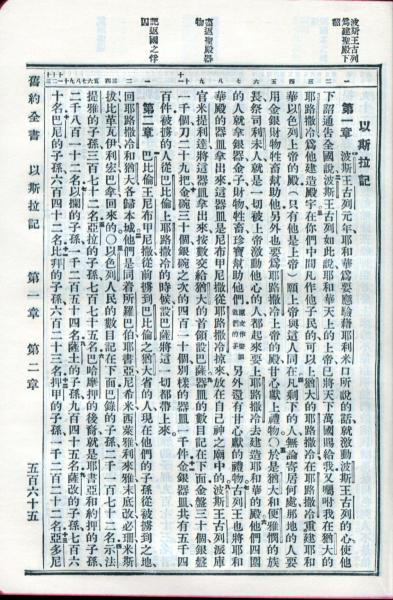 波斯王古列
為建聖殿下
詔
復返聖殿器
物
記返國之俘
囚
以斯拉記
第一章 波斯王古列元年、耶和華為要應驗藉耶利米口所說的話就激動波斯王古列的心使他
下詔通告全國說波斯王古列如此說耶和華天上的上帝已將天下萬國賜給我又囑咐我在猶大的
耶路撒冷為他建造殿宇在你們中間凡作他子民的可以上猶大的耶路撒冷在耶路撒冷重建耶和
華以色列上帝的殿（只有他是上帝）願上帝與這人同在凡剩下的人無論寄居何處那地的人要
用金銀財物牲畜幫助他另外也要為耶路撒冷上帝的殿甘心獻上禮物○於是猶大和便雅憫的族
長祭司利未人就是一切被上帝激動他心的人都起來要上耶路撒冷去建造耶和華的殿他們四圍
的人就拿銀器金子財物牲畜珍寶幫助他們原文作堅固他們的手另外還有甘心獻的禮物古列王也將耶和
華殿的器皿拿出來這器皿是尼布甲尼撒從耶路撒冷掠來放在自己神之廟中的波斯王古列派庫
官米提利達將這器皿拿出來按數交給猶大的首領設巴薩器皿的數目記在下面金盤三十個銀盤
一千個刀二十九把金碗三十個銀碗之次的四百一十個別樣的器皿一千件金銀器皿共有五千四
百件被擄的人從巴比倫上耶路撒冷的時候設巴薩將這一切都帶上來。
第二章 巴比倫王尼布甲尼撒從前擄到巴比倫之猶大省的人現在他們的子孫從被擄到之地
回耶路撒冷和猶大各歸本城他們是同着所羅巴伯耶書亞尼希米西萊雅利來雅末底改必珊米斯
拔比革瓦伊利宏巴拿回來的○以色列人民的數目記在下面巴錄的子孫二千一百七十二名示法
提雅的子孫三百七十二名亞拉的子孫七百七十五名巴哈摩押的後裔就是耶書亞和約押的子孫
二千八百一十二名以攔的子孫一千二百五十四名薩土的子孫九百四十五名薩改的子孫七百六
十名巴尼的子孫六百四十二名比拜的子孫六百二十三名押甲的子孫一千二百二十二名亞多尼
舊約全書 以斯拉記 第一章 第二章 五百六十五